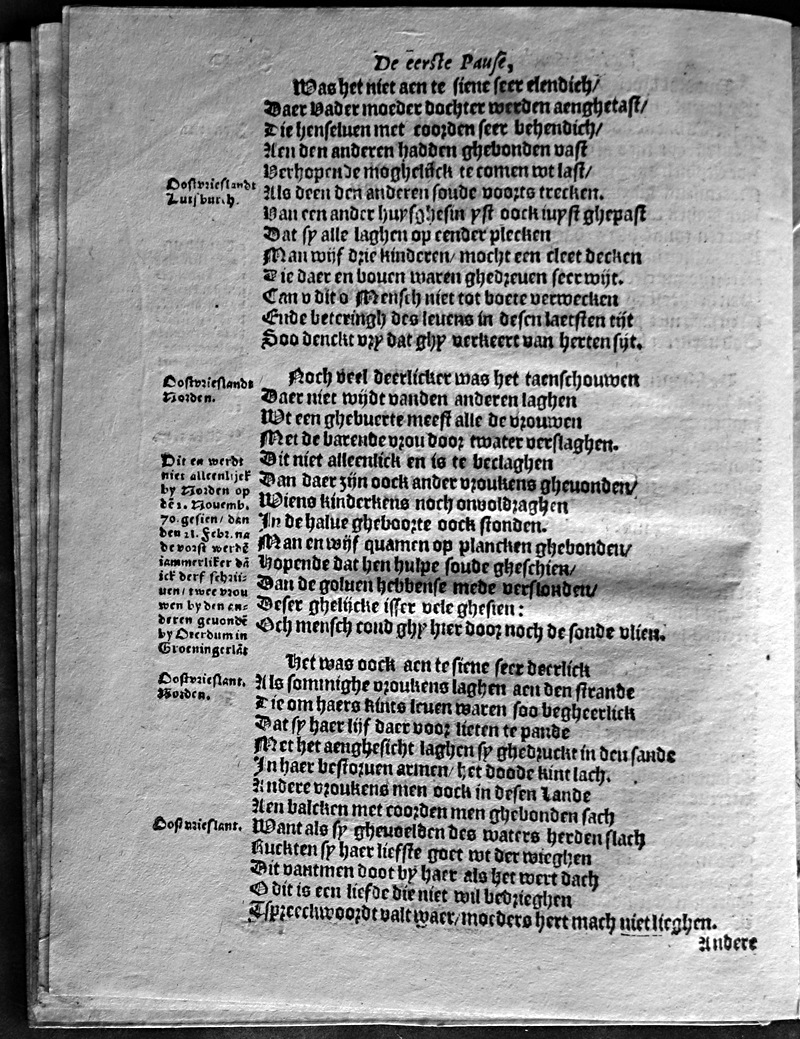 De eerste Pause,
Was het niet aen te siene seer elendich/
Daer Vader moeder dochter werden aenghetast/
Die henseluen met coorden seer behendich/
Aen den anderen hadden ghebonden vast
Verhopende moghelijck te comen wt last/
Oostvrieslandt
Lutsburch.
Als deen den anderen soude voorts trecken.
Van een ander huysghesin yst oock iuyst ghepast
Dat sy alle laghen op eender plecken
Man wijf drie kinderen/ mocht een cleet decken
Die daer en bouen waren ghedreuen seer wijt.
Can v dit o Mensch niet tot boete verwecken
Ende beteringh des leuens in desen laetsten tijt
Soo denckt vry dat ghy verkeert van herten sijt.
Oostvrieslandt
Norden.
Noch veel deerlicker was het taenschouwen
Daer niet wijdt vanden anderen laghen
Wt een ghebuerte meest alle de vrouwen
Met de barende vrou door twater verslaghen.
Dit en werdt
niet alleenlijck
by Norden op
dē 2. Nouemb.
70. gesien/ dan
den 21. Febr. na
de vorst werdē
iammerliker dā
ick derf schrij-
uen/ twee vrou
wen by den an-
deren geuondē
by Oterdum in
Groeningerlāt
Dit niet alleenlick en is te beclaghen
Dan daer zijn oock ander vroukens gheuonden/
Wiens kinderkens noch onvoldraghen
In de halue gheboorte oock stonden.
Man en wijf quamen op plancken ghebonden/
Hopende dat hen hulpe soude gheschien/
Dan de goluen hebbense mede verslonden/
Deser ghelijcke isser vele ghesien:
Och mensch cond ghy hier door noch de sonde vlien.
Oostvrieslant.
Norden.
Het was oock aen te siene seer deerlick
Als sommighe vroukens laghen aen den strande
Die om haers kints leuen waren soo begheerlick
Dat sy haer lijf daer voor lieten te pande
Met het aenghesicht laghen sy ghedruckt in den sande
In haer bestoruen armen/ het doode kint lach.
Andere vroukens men oock in desen Lande
Aen balcken met coorden men ghebonden sach
Oostvrieslant.
Want als sy gheuoelden des waters herden slach
Ruckten sy haer liefste goet wt der wieghen
Dit vantmen doot by haer als het wert dach
O dit is een liefde die niet wil bedrieghen
Tspreeckwoordt valt waer/ moeders hert mach niet lieghen.
Andere